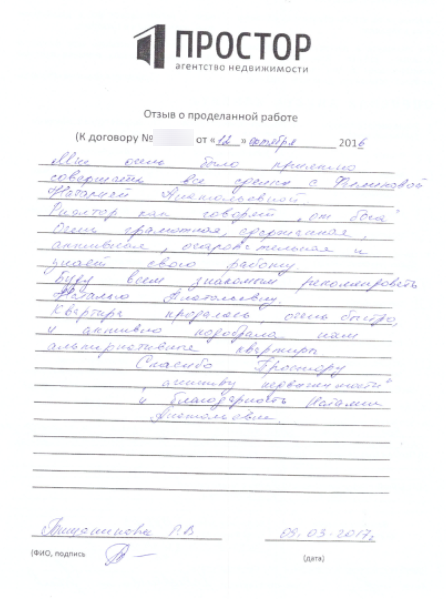 ПРОСТОР
агентство недвижимости
Отзыв о проделанной работе
(К договору № от «12» октября 2016
Мне очень было приятно
совершать все сделки с
Натальей Анатольевной
Риэлтор как говорят „от бога"
Очень грамотная, сдержанная,
активная, очаровательная и
знает свою работу
Буду всем знакомым рекомендовать
Наталью Анатольевну.
Квартира продалась очень быстро,
и активно подобрала нам
альтернативные квартиры
Спасибо Простору
недвижимости"
и благодарность Наталии
Анатольевне.
09.03-2017г
(ФИО, подпись
(дата)